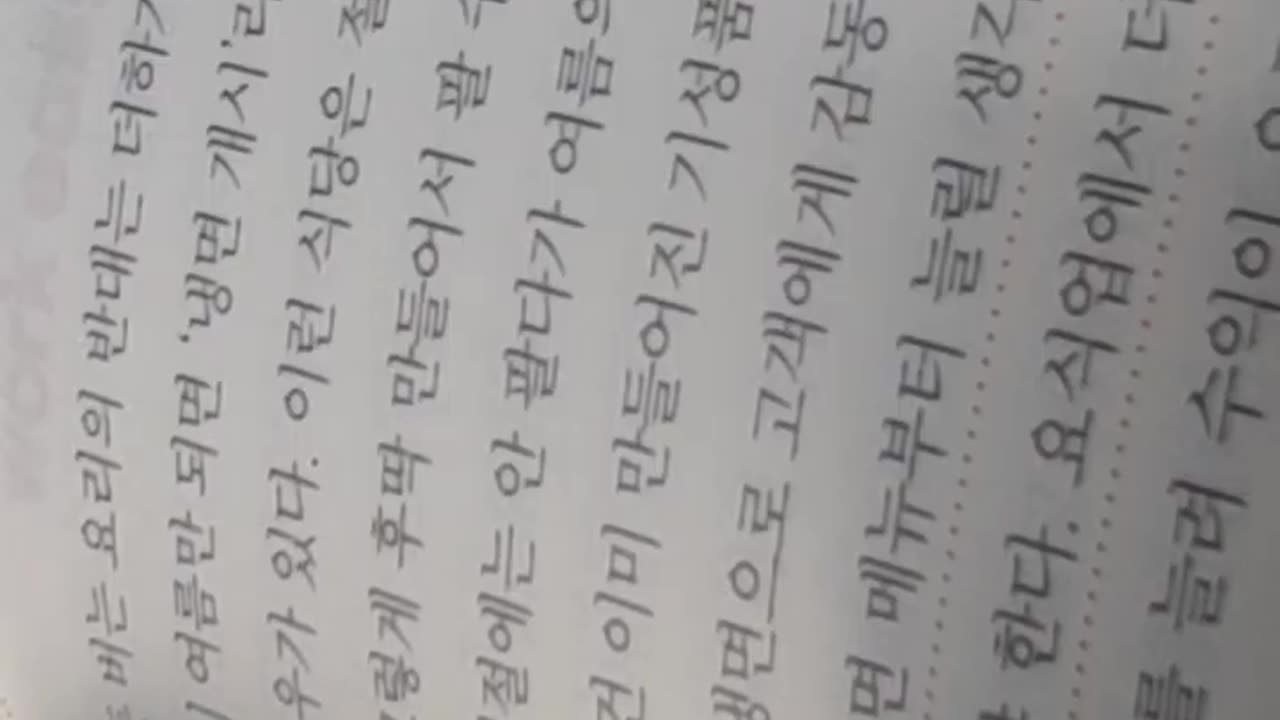 비는 요리의 반대는 더하
여름만 되면 '냉면 개시'라
우가 있다. 이런 식당은 절
렇게 후딱 만들어서 팔 수
절에는 안 팔다가 여름의
건 이미 만들어진 기성품
냉면으로 고객에게 감동
면 메뉴부터 늘릴 생각
한다. 요식업에서 더
를 늘려 수익이